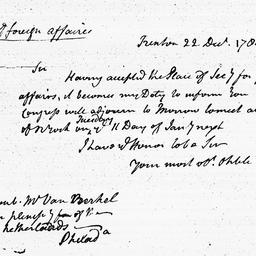 foreign affairs
Trenton 22 Decr. 178
Sir
Having accepted the Place of Secy for
affairs, it becomes my Duty to inform You
Congress will adjourn to Morrow to meet
at N York on Tuesday 11 Day of Jany next
I have ye Honor to be Sir
Your most obt. Hble
Mr Van Berkel
plenipy for of ye
Netherlands
Philada